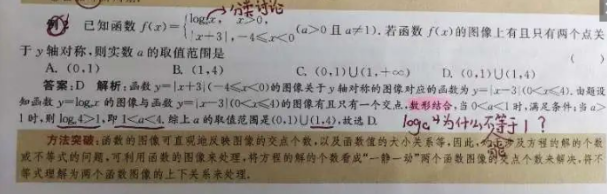 分类讨论
例2 已知函数 f(x)={logₐx, x>0,
|x+3|,-4≤x<0 (a>0 且 a≠1).若函数 f(x)的图像上有且只有两个点关
于 y 轴对称,则实数 a 的取值范围是 ( )
A. (0,1) B. (1,4) C. (0,1)∪(1,+∞) D. (0,1)∪(1,4)
答案:D 解析:函数 y=|x+3|(-4≤x<0)的图像关于 y 轴对称的图像对应的函数为 y=|x-3|(0<x≤4).由题设
知函数 y=logₐx 的图像与函数 y=|x-3|(0<x≤4)的图像有且只有一个交点,数形结合,当 0<a<1 时,满足条件;当 a>
1 时,则 logₐ4>1,即 1<a<4.综上 a 的取值范围是(0,1)∪(1,4),故选 D.
logₐ4为什么不等于1?
方法突破:函数的图像可直观地反映图像的交点个数,以及函数值的大小关系等,因此,涉及方程的解的个数
或不等式的问题,可利用函数的图像来处理,将方程的解的个数看成“一静一动”两个函数图像的交点个数来解决,将不
等式理解为两个函数图像的上下关系来处理.